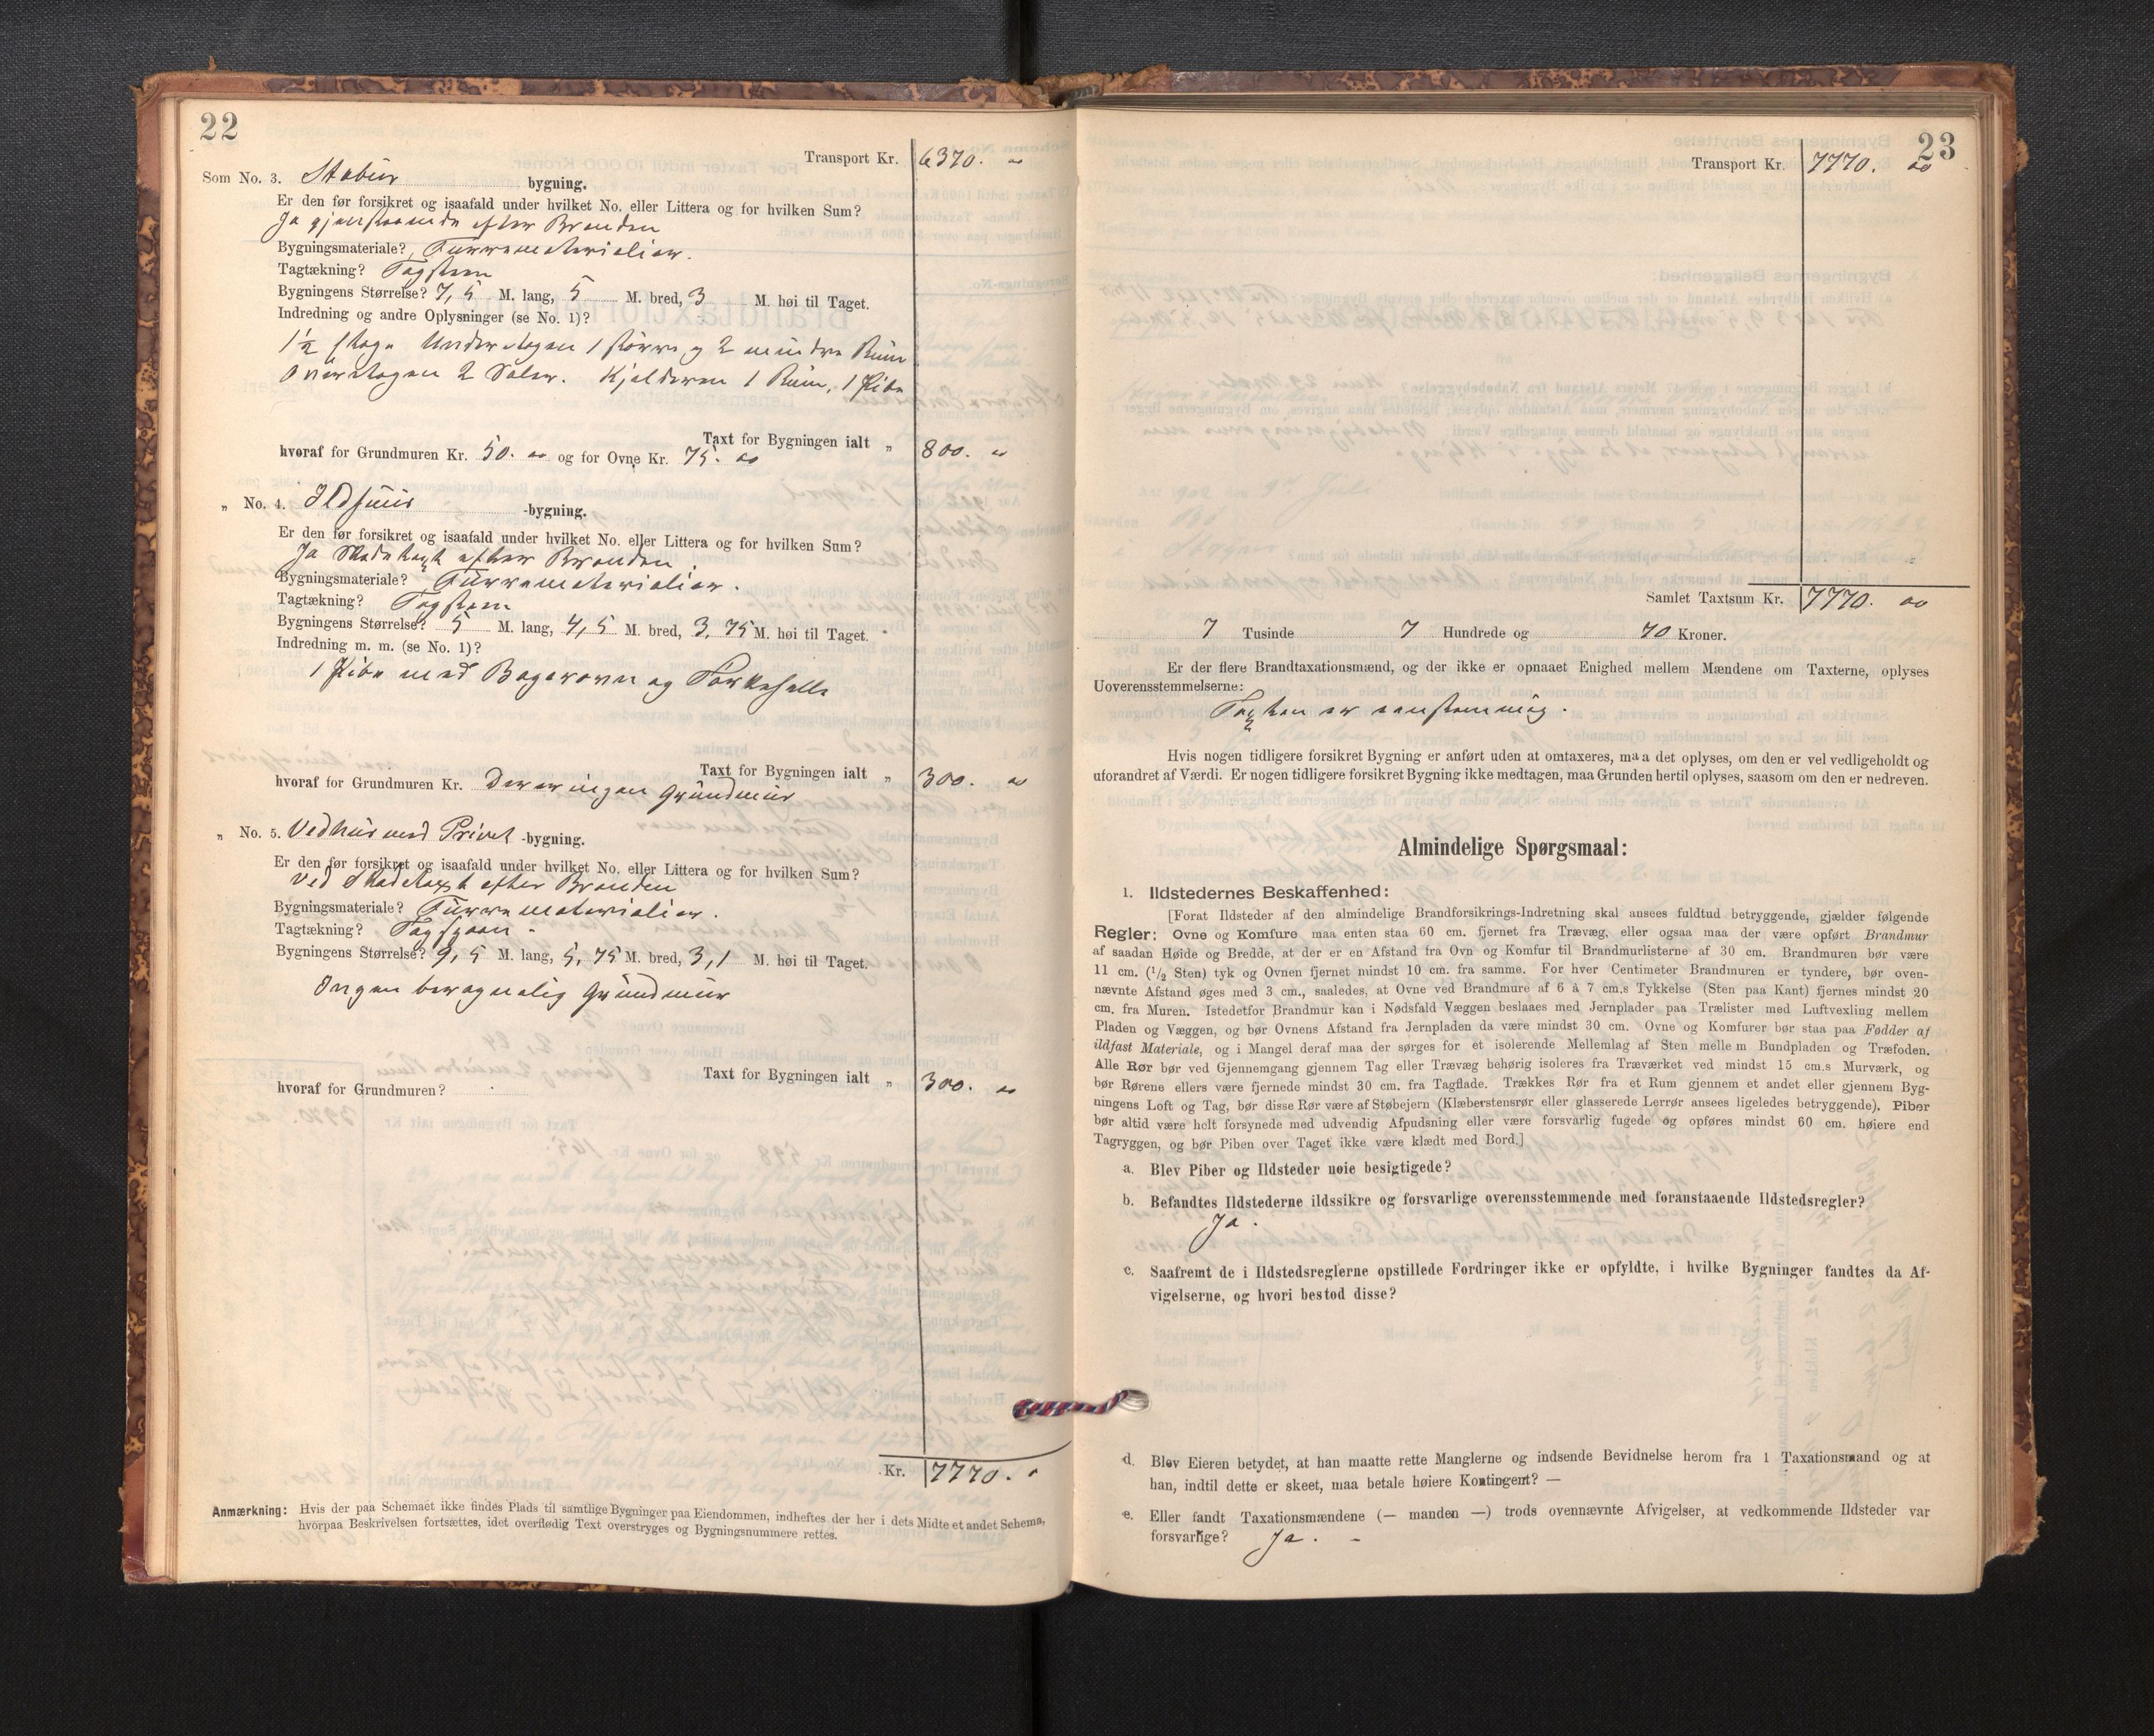 22
Transport Kr. 6370. "
Som No. 3. Stabur bygning.
Er den før forsikret og isaafald under hvilket No. eller Littera og for hvilken Sum?
Ja gjenstaaende efter Branden
Bygningsmateriale? Furrematerialier.
Tagtækning? Tagsteen
Bygningens Størrelse? 7,5 M. lang, 5 M. bred, 3 M. høi til Taget.
Indredning og andre Oplysninger (se No. 1)?
1½ Etage Underetagen 1 større og 2 mindre Rum
Overetagen 2 Saler. Kjelderen 1 Rum, 1 Pibe
Taxt for Bygningen ialt " 800. "
hvoraf for Grundmuren Kr. 50. 00 og for Ovne Kr. 75. 00
" No. 4. Ildhuus -bygning.
Er den før forsikret og isaafald under hvilket No. eller Littera og for hvilken Sum?
Ja Skadetaxt efter Branden.
Bygningsmateriale? Furrematerialier.
Tagtækning? Tagsteen
Bygningens Størrelse? 5 M. lang, 4,5 M. bred, 3,75 M. høi til Taget.
Indredning m. m. (se No. 1)?
1 Pibe med Bagerovn og Tørkehelle
Taxt for Bygningen ialt " 300. "
hvoraf for Grundmuren Kr. Der er ingen Grundmur
" No. 5. Vedhus med Privet -bygning.
Er den før forsikret og isaafald under hvilket No. eller Littera og for hvilken Sum?
Ved Skadetaxt efter Branden
Bygningsmateriale? Furrematerialier.
Tagtækning? Tagspaan
Bygningens Størrelse? 9,5 M. lang, 5,75 M. bred, 3,1 M. høi til Taget.
Ingen beregnelig Grundmur
Taxt for Bygningen ialt " 300. "
hvoraf for Grundmuren?
Kr. 7770. "
Anmærkning: Hvis der paa Schemaet ikke findes Plads til samtlige Bygninger paa Eiendommen, indheftes der her i dets Midte et andet Schema,
hvorpaa Beskrivelsen fortsættes, idet overflødig Text overstryges og Bygningsnummere rettes.
23
Transport Kr. 7770. 00
Samlet Taxtsum Kr. 7770. 00
7 Tusinde 7 Hundrede og 70 Kroner.
Er der flere Brandtaxationsmænd, og der ikke er opnaaet Enighed mellem Mændene om Taxterne, oplyses
Uoverensstemmelserne:
Taxten er eenstemmig.
Hvis nogen tidligere forsikret Bygning er anført uden at omtaxeres, maa det oplyses, om den er vel vedligeholdt og
uforandret af Værdi. Er nogen tidligere forsikret Bygning ikke medtagen, maa Grunden hertil oplyses, saasom om den er nedreven.
Almindelige Spørgsmaal:
1. Ildstedernes Beskaffenhed:
[Forat Ildsteder af den almindelige Brandforsikrings-Indretning skal ansees fuldtud betryggende, gjælder følgende
Regler: Ovne og Komfure maa enten staa 60 cm. fjernet fra Trævæg, eller ogsaa maa der være opført Brandmur
af saadan Høide og Bredde, at der er en Afstand fra Ovn og Komfur til Brandmurlisterne af 30 cm. Brandmuren bør være
11 cm. (1/2 Sten) tyk og Ovnen fjernet mindst 10 cm. fra samme. For hver Centimeter Brandmuren er tyndere, bør oven-
nævnte Afstand øges med 3 cm., saaledes, at Ovne ved Brandmure af 6 à 7 cm.s Tykkelse (Sten paa Kant) fjernes mindst 20
cm. fra Muren. Istedetfor Brandmur kan i Nødsfald Væggen beslaaes med Jernplader paa Trælister med Luftvexling mellem
Pladen og Væggen, og bør Ovnens Afstand fra Jernpladen da være mindst 30 cm. Ovne og Komfurer bør staa paa Fødder af
ildfast Materiale, og i Mangel deraf maa der sørges for et isolerende Mellemlag af Sten mellem Bundpladen og Træfoden.
Alle Rør bør ved Gjennemgang gjennem Tag eller Trævæg behørig isoleres fra Træværket ved mindst 15 cm.s Murværk, og
bør Rørene ellers være fjernede mindst 30 cm. fra Tagflade. Trækkes Rør fra et Rum gjennem et andet eller gjennem Byg-
ningens Loft og Tag, bør disse Rør være af Støbejern (Klæberstensrør eller glasserede Lerrør ansees ligeledes betryggende). Piber
bør altid være helt forsynede med udvendig Afpudsning eller være forsvarlig fugede og opføres mindst 60 cm. høiere end
Tagryggen, og bør Piben over Taget ikke være klædt med Bord.]
a. Blev Piber og Ildsteder nøie besigtigede?
b. Befandtes Ildstederne ildssikre og forsvarlige overensstemmende med foranstaaende Ildstedsregler?
Ja.
c. Saafremt de i Ildstedsreglerne opstillede Fordringer ikke er opfyldte, i hvilke Bygninger fandtes da Af-
vigelserne, og hvori bestod disse?
d. Blev Eieren betydet, at han maatte rette Manglerne og indsende Bevidnelse herom fra 1 Taxationsmand og at
han, indtil dette er skeet, maa betale høiere Kontingent? —
e. Eller fandt Taxationsmændene (— manden —) trods ovennævnte Afvigelser, at vedkommende Ildsteder var
forsvarlige? Ja. -